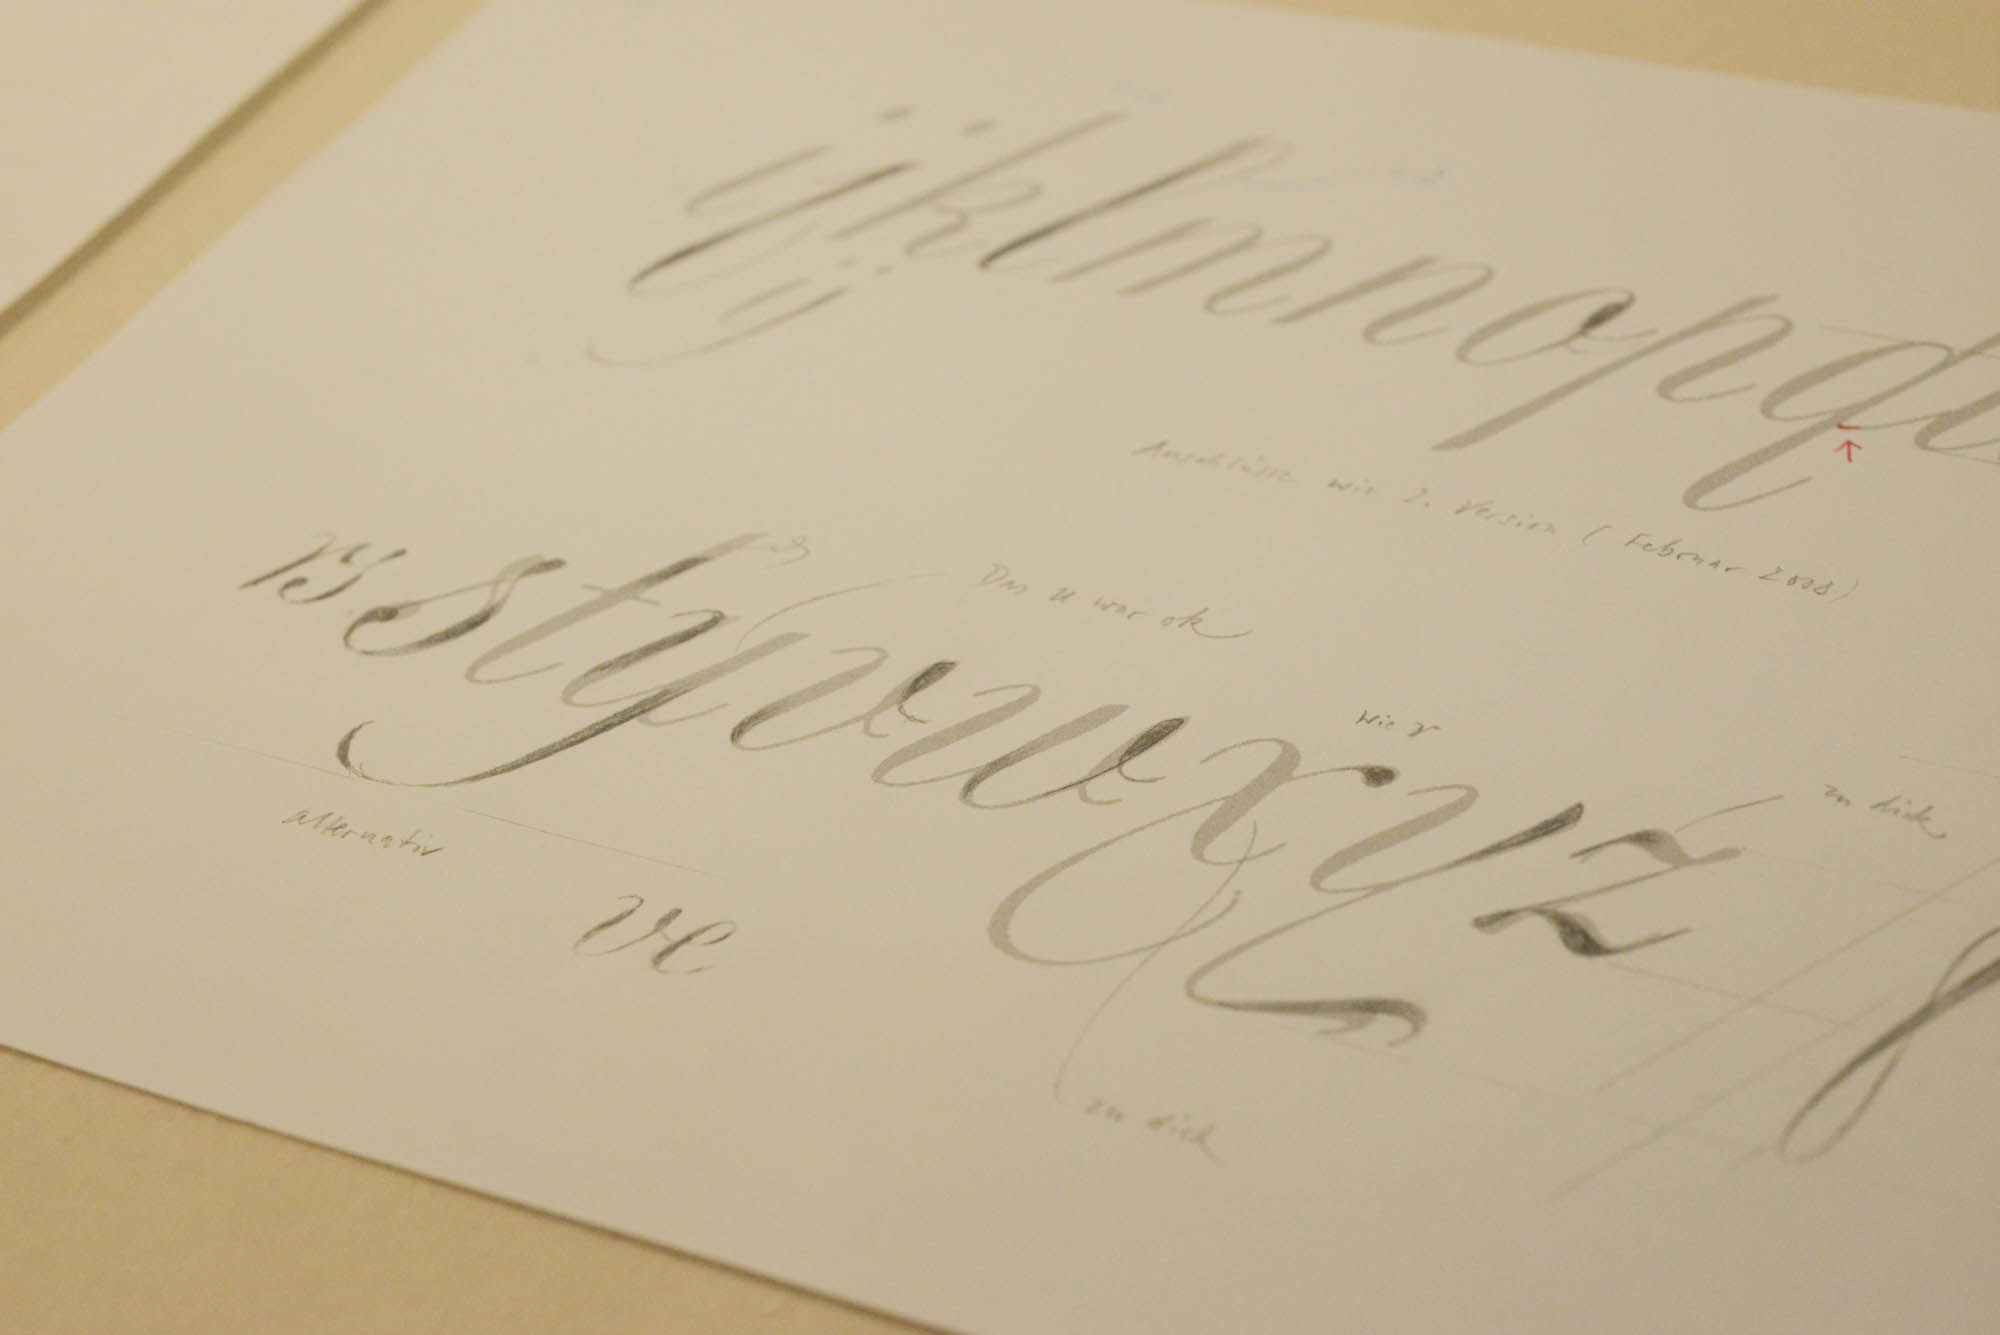 ijklmnopq
ij
Anschlüsse wie 2. Version (Februar 2008)
rs
styvwxyz
Das u war ok
wie r
zu dick
alternativ
ve
zu dick